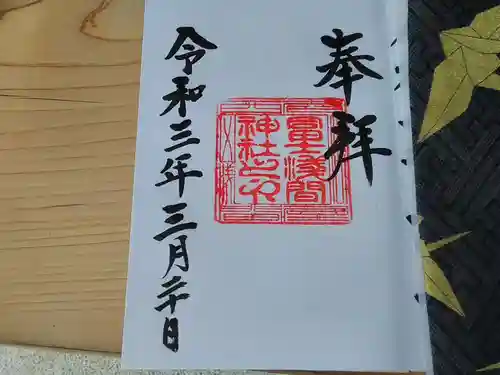 奉拝
冨士浅間
神社之印
令和三年三月二十日